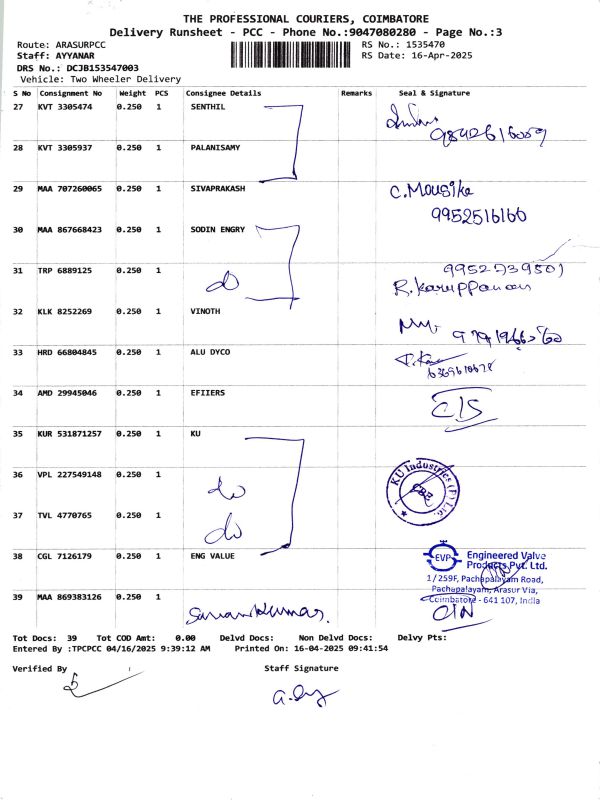 THE PROFESSIONAL COURIERS, COIMBATORE
Delivery Runsheet - PCC - Phone No.:9047080280 - Page No.:3
Route: ARASURPCC RS No.: 1535470
Staff: AYYANAR RS Date: 16-Apr-2025
DRS No.: DCJB153547003
Vehicle: Two Wheeler Delivery
S No Consignment No Weight PCS Consignee Details Remarks Seal & Signature
27 KVT 3305474 0.250 1 SENTHIL
9842616059
28 KVT 3305937 0.250 1 PALANISAMY
29 MAA 707260065 0.250 1 SIVAPRAKASH C. Mousika
9952516160
30 MAA 867668423 0.250 1 SODIN ENGRY
31 TRP 6889125 0.250 1 do 9952739501
R. Karuppanan
32 KLK 8252269 0.250 1 VINOTH
33 HRD 66804845 0.250 1 ALU DYCO
34 AMD 29945046 0.250 1 EFIIERS
35 KUR 531871257 0.250 1 KU
36 VPL 227549148 0.250 1 do KU Industries (P) Ltd.
CBE
37 TVL 4770765 0.250 1 do
38 CGL 7126179 0.250 1 ENG VALUE EVP Engineered Valve
Products Pvt. Ltd.
1/259F, Pachapalayam Road,
Pachapalayam, Arasur Via,
Coimbatore - 641 107, India
39 MAA 869383126 0.250 1 Saravanakumar.
Tot Docs: 39 Tot COD Amt: 0.00 Delvd Docs: Non Delvd Docs: Delvy Pts:
Entered By :TPCPCC 04/16/2025 9:39:12 AM Printed On: 16-04-2025 09:41:54
Verified By Staff Signature